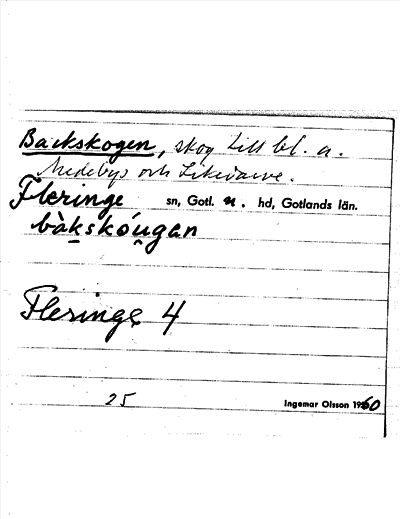 Backskogen, skog till bl. a.
Medebys och Likvarve.
Fleringe sn, Gotl. n. hd, Gotlands län.
bàkskóugan
Fleringe 4
25 Ingemar Olsson 1960